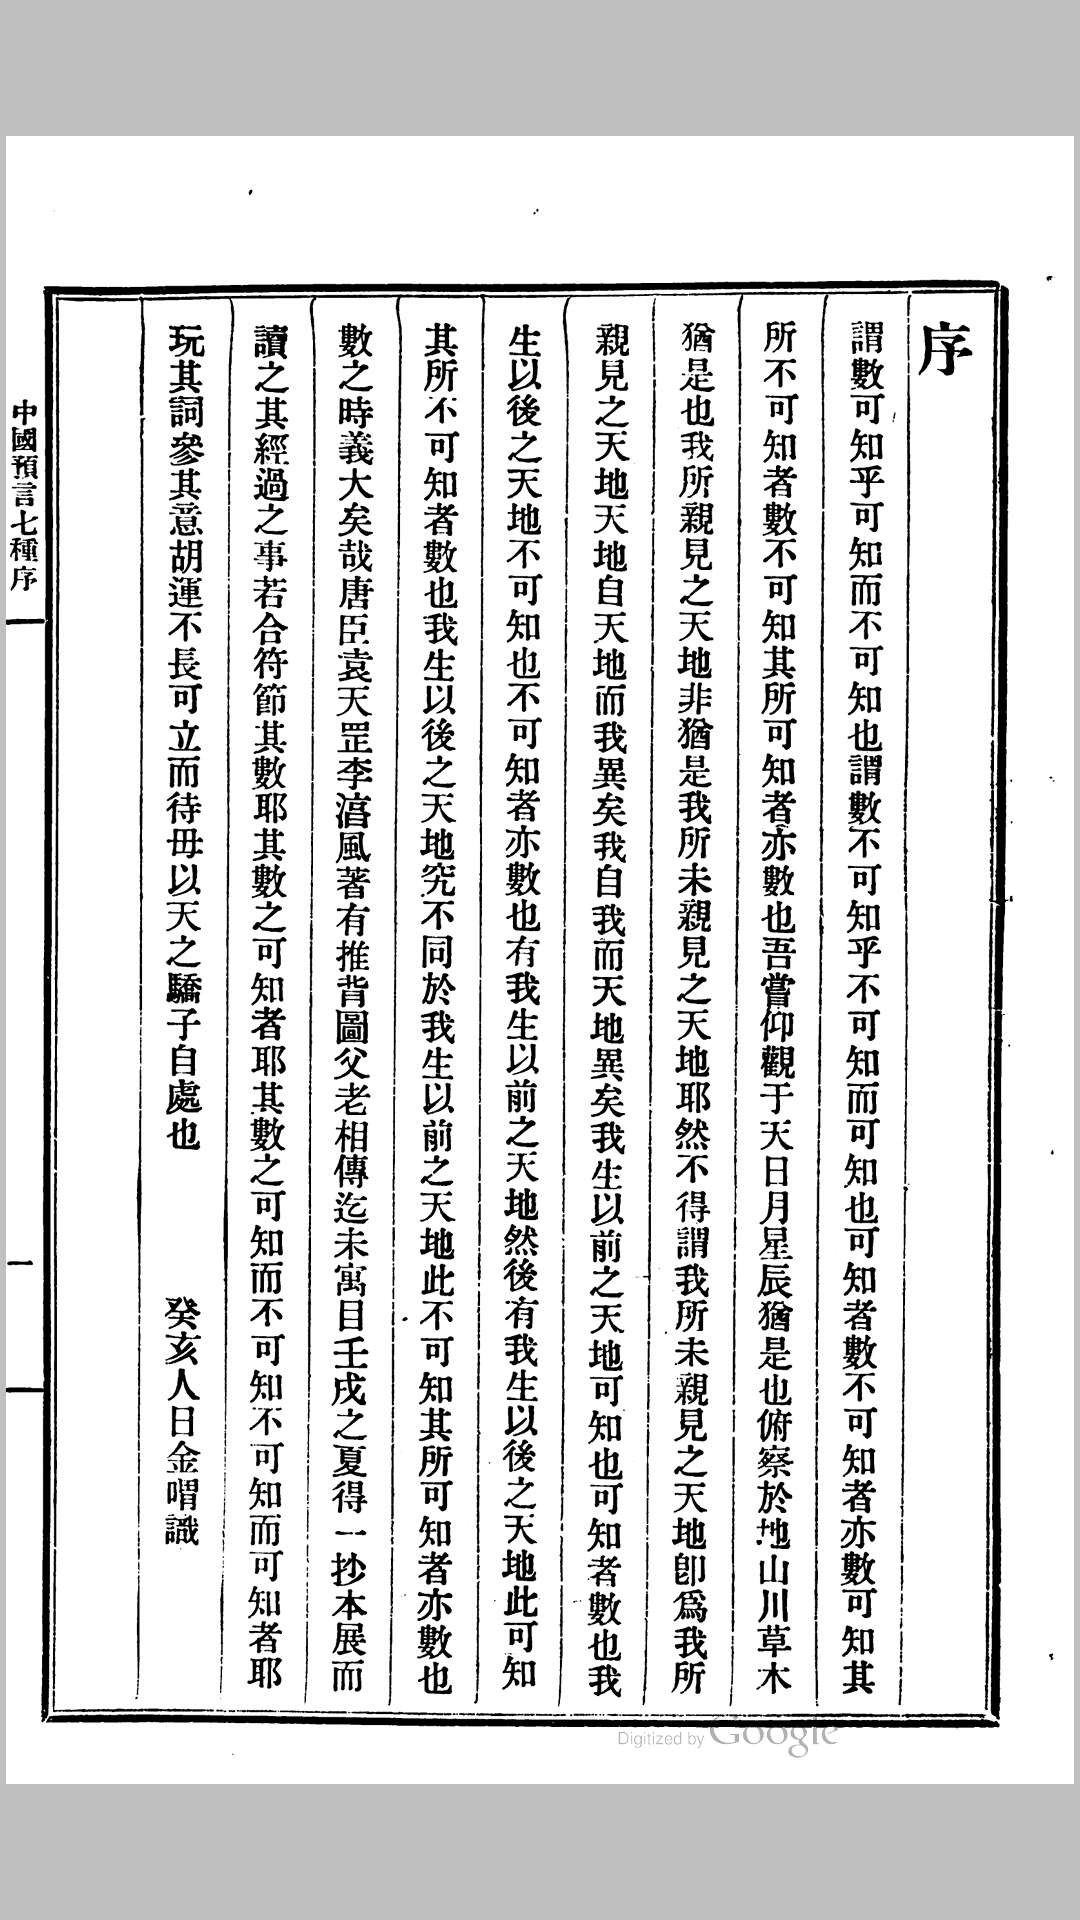 序
謂數可知乎可知而不可知也謂數不可知乎不可知而可知也可知者數不可知者亦數可知其
所不可知者數不可知其所可知者亦數也吾嘗仰觀于天日月星辰猶是也俯察於地山川草木
猶是也我所親見之天地非猶是我所未親見之天地耶然不得謂我所未親見之天地卽爲我所
親見之天地天地自天地而我異矣我自我而天地異矣我生以前之天地可知也可知者數也我
生以後之天地不可知也不可知者亦數也有我生以前之天地然後有我生以後之天地此可知
其所不可知者數也我生以後之天地究不同於我生以前之天地此不可知其所可知者亦數也
數之時義大矣哉唐臣袁天罡李淯風著有推背圖父老相傳迄未寓目壬戌之夏得一抄本展而
讀之其經過之事若合符節其數耶其數之可知者耶其數之可知而不可知不可知而可知者耶
玩其詞參其意胡運不長可立而待毋以天之驕子自處也
癸亥人日金喟識
中國預言七種序
一
Digitized by Google